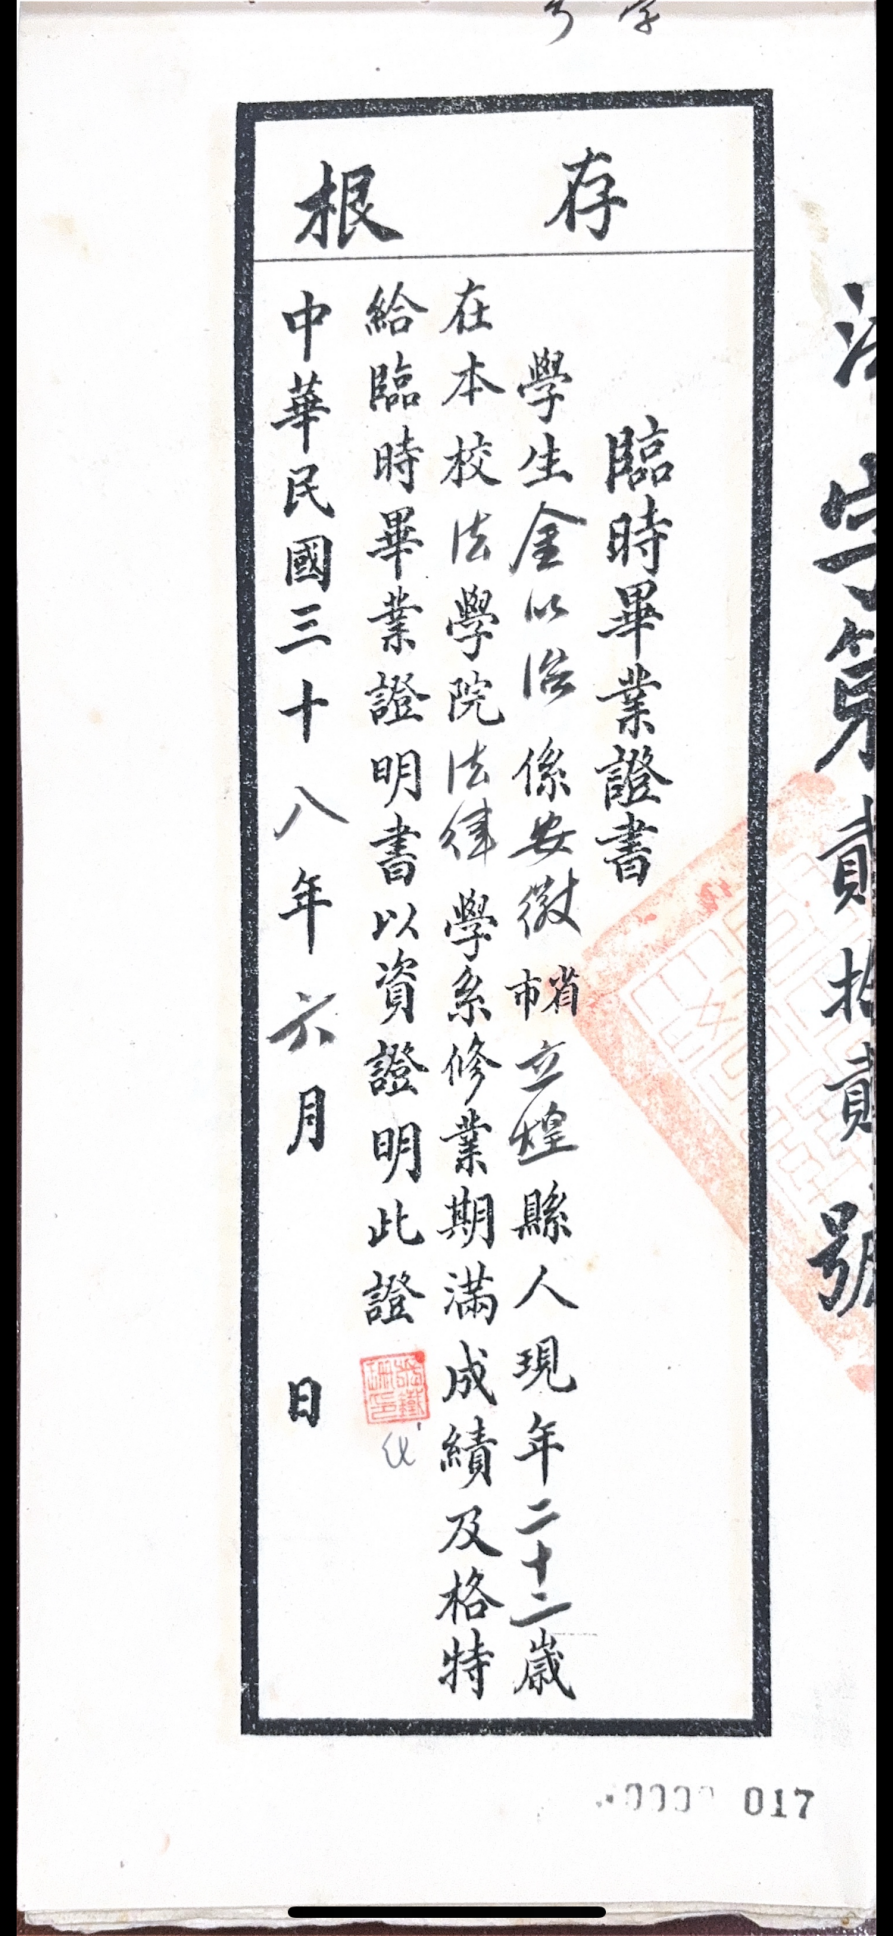 字號
存根
臨時畢業證書
學生金以浴係安徽省市立煌縣人現年二十二歲
在本校法學院法律學系修業期滿成績及格特
給臨時畢業證明書以資證明此證
中華民國三十八年六月 日
法字第貳拾貳號
017